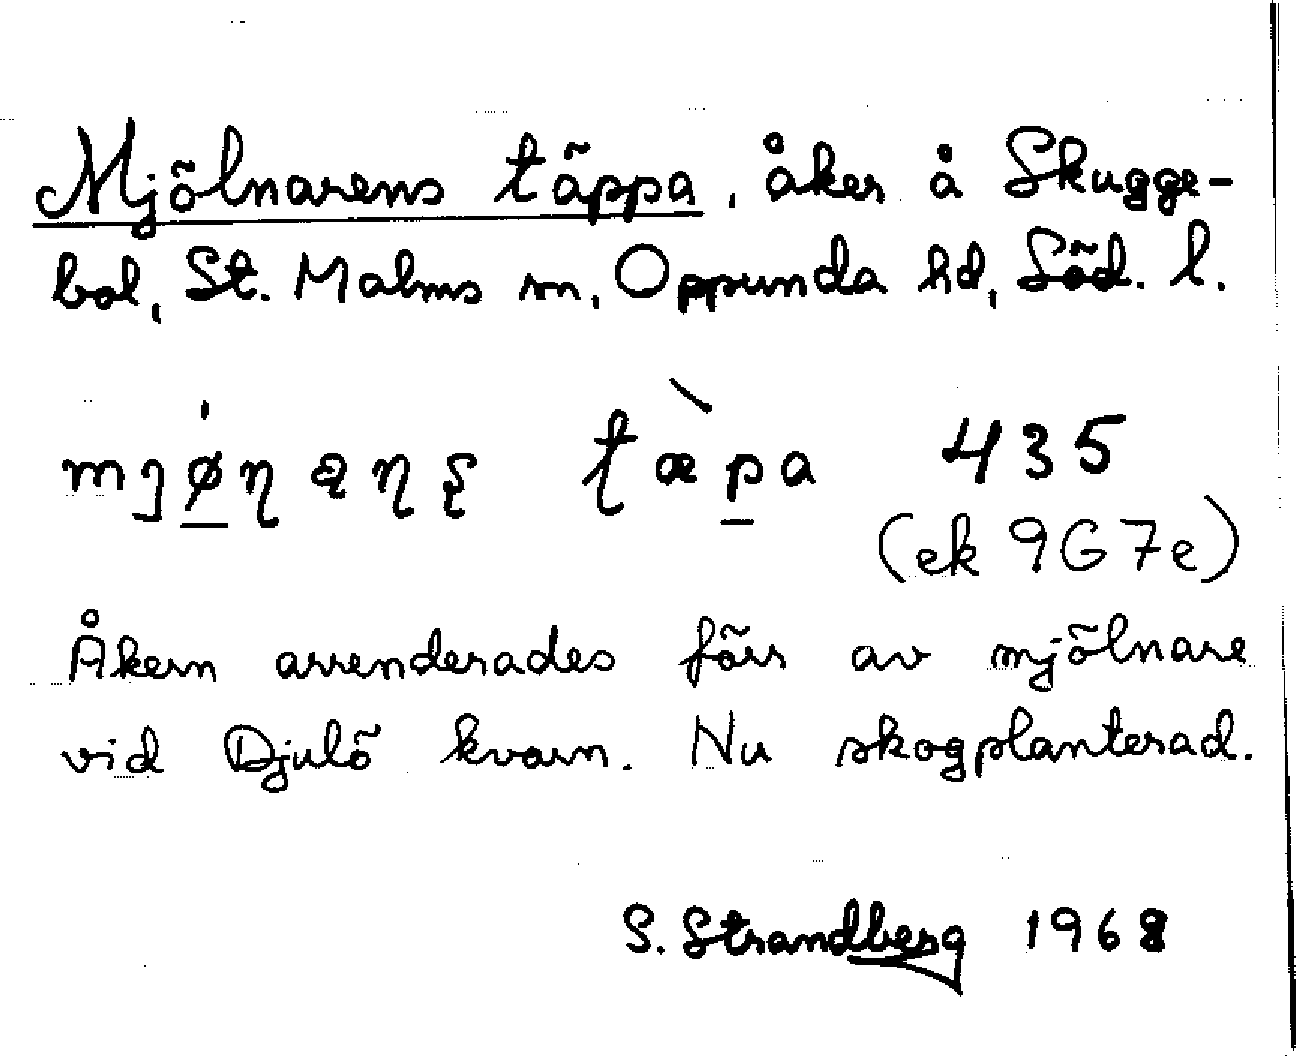 Mjölnarens täppa, åker å Skugge-
bol, St. Malms sn, Oppunda hd, Söd. l.
435
(ek 9G7e)
Åkern arrenderades förr av mjölnare
vid Djulö kvarn. Nu skogplanterad.
S. Strandberg 1968